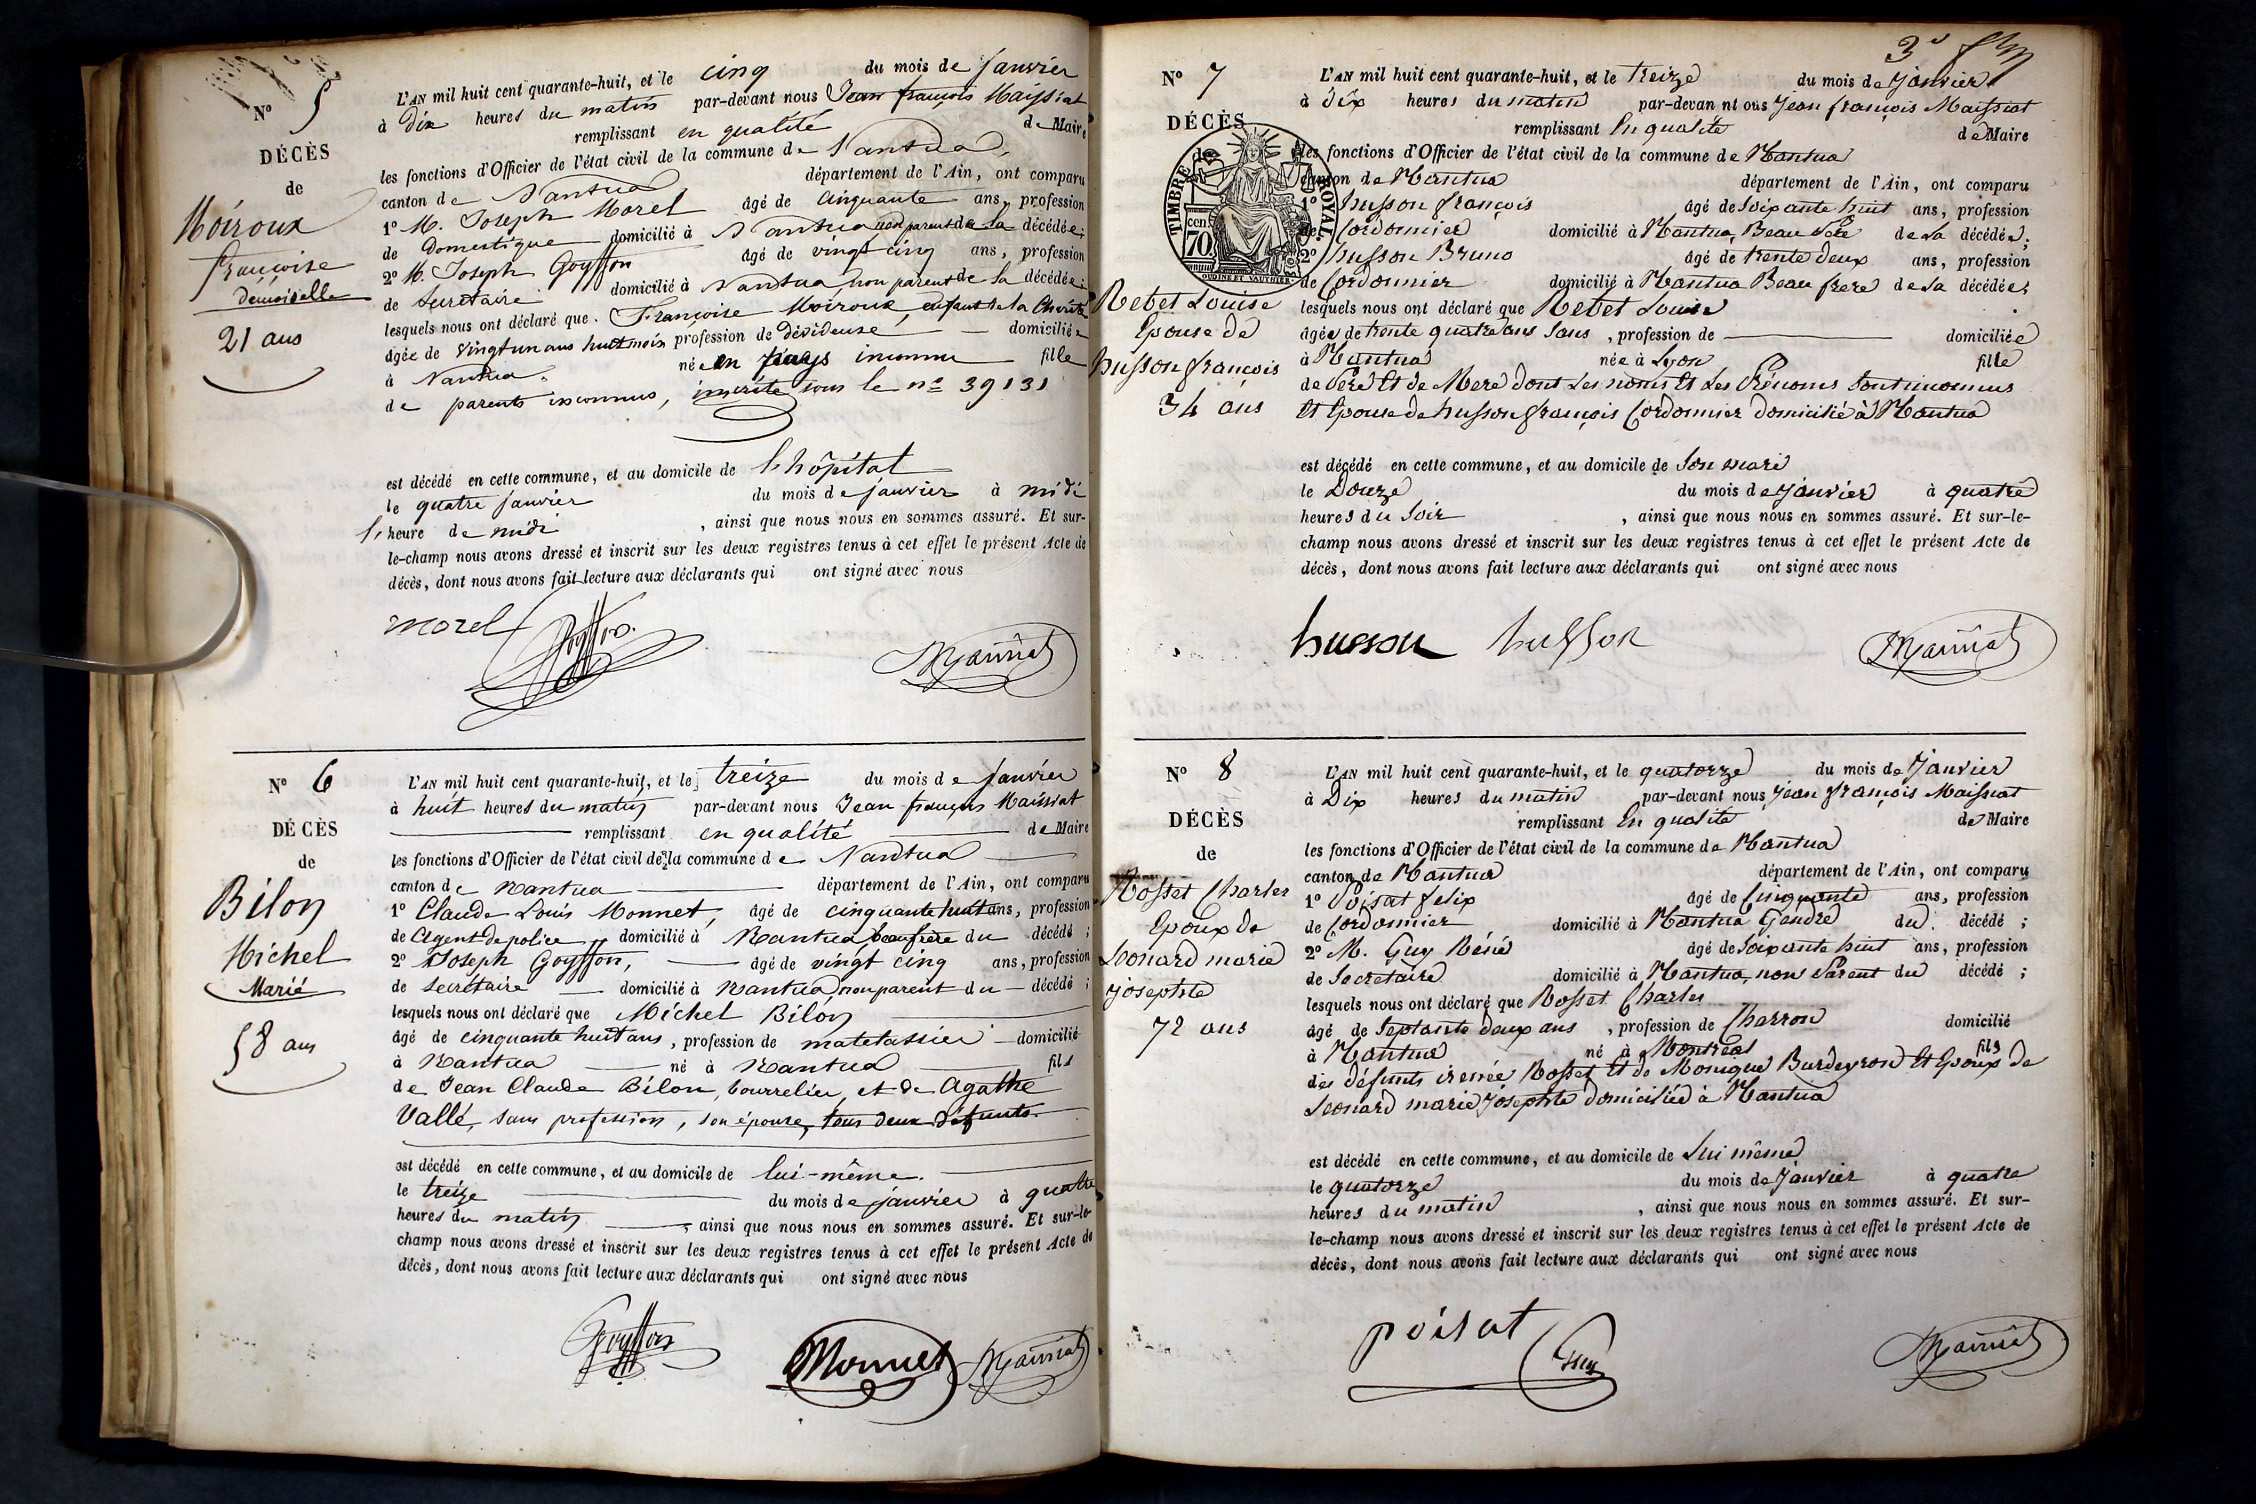 N° 5
DÉCÈS
de
Moiroux
Françoise
demoiselle
21 ans
L'AN mil huit cent quarante-huit, et le cinq du mois de janvier
à dix heures du matin par-devant nous Jean françois Mayssiat
remplissant en qualité de Maire
les fonctions d'Officier de l'état civil de la commune de Nantua,
canton de Nantua département de l'Ain, ont comparu
1° M. Joseph Morel âgé de cinquante ans, profession
de domestique domicilié à Nantua non parent de la décédée;
2° M. Joseph Goyffon âgé de vingt cinq ans, profession
de secrétaire domicilié à Nantua, non parent de la décédée;
lesquels nous ont déclaré que Françoise Moiroux, enfant de la Charité
âgée de vingt un ans huit mois profession de dévideuse domiciliée
à Nantua, née en pays inconnu fille
de parents inconnus, inscrite sous le n° 39131
est décédé en cette commune, et au domicile de l'hôpital
le quatre janvier du mois de janvier à midi
l'heure de midi , ainsi que nous nous en sommes assuré. Et sur-
le-champ nous avons dressé et inscrit sur les deux registres tenus à cet effet le présent Acte de
décès, dont nous avons fait lecture aux déclarants qui ont signé avec nous
morel Goyffon Maissiat
N° 6
DÉCÈS
de
Bilon
Michel
Marié
58 ans
L'AN mil huit cent quarante-huit, et le treize du mois de janvier
à huit heures du matin par-devant nous Jean françois Maissiat
remplissant en qualité de Maire
les fonctions d'Officier de l'état civil de la commune de Nantua
canton de Nantua département de l'Ain, ont comparu
1° Claude Louis Monnet, âgé de cinquante huit ans, profession
de Agent de police domicilié à Nantua beaufrère du décédé;
2° Joseph Goyffon, âgé de vingt cinq ans, profession
de secrétaire domicilié à Nantua non parent du décédé;
lesquels nous ont déclaré que Michel Bilon
âgé de cinquante huit ans, profession de matelassier domicilié
à Nantua né à Nantua fils
de Jean Claude Bilon, bourrelier, et de Agathe
Vallé, sans profession, son épouse, tous deux défunts
est décédé en cette commune, et au domicile de lui-même.
le treize du mois de janvier à quatre
heures du matin , ainsi que nous nous en sommes assuré. Et sur-le-
champ nous avons dressé et inscrit sur les deux registres tenus à cet effet le présent Acte de
décès, dont nous avons fait lecture aux déclarants qui ont signé avec nous
Goyffon Monnet Maissiat
3e
N° 7
DÉCÈS
de
TIMBRE ROYAL.
70 cen.
OUDINÉ ET VAUTHIER
Rebet Louise
Epouse de
husson françois
34 ans
L'AN mil huit cent quarante-huit, et le treize du mois de Janvier
à dix heures du matin par-devan nt ous Jean françois Maissiat
remplissant En qualité de Maire
les fonctions d'Officier de l'état civil de la commune de Nantua
canton de Nantua département de l'Ain, ont comparu
1° husson françois âgé de soixante huit ans, profession
de Cordonnier domicilié à Nantua, Beau Père de la décédée;
2° husson Bruno âgé de trente deux ans, profession
de Cordonnier domicilié à Nantua Beau frere de la décédée;
lesquels nous ont déclaré que Rebet Louise
âgée de trente quatre ans Sans , profession de domiciliée
à Nantua née à Lyon fille
de Père Et de Mere dont Les noms Et Les Prénoms Sont inconnus
Et Epouse de husson françois Cordonnier domicilié à Nantua
est décédé en cette commune, et au domicile de Son mari
le Douze du mois de Janvier à quatre
heures du Soir , ainsi que nous nous en sommes assuré. Et sur-le-
champ nous avons dressé et inscrit sur les deux registres tenus à cet effet le présent Acte de
décès, dont nous avons fait lecture aux déclarants qui ont signé avec nous
husson husson Maissiat
N° 8
DÉCÈS
de
Rosset Charles
Epoux de
Leonard marie
josephte
72 ans
L'AN mil huit cent quarante-huit, et le quatorze du mois de Janvier
à Dix heures du matin par-devant nous Jean françois Maissiat
remplissant En qualité de Maire
les fonctions d'Officier de l'état civil de la commune de Nantua
canton de Nantua département de l'Ain, ont comparu
1° Poisat felix âgé de Cinquante ans, profession
de Cordonnier domicilié à Nantua Gendre du décédé;
2° M. Guy Réné âgé de Soixante huit ans, profession
de Secretaire domicilié à Nantua, non Parent du décédé;
lesquels nous ont déclaré que Rosset Charles
âgé de Septante deux ans , profession de Charron domicilié
à Nantua né à Montréal fils
des défunts irenée Rosset Et de Monique Burdeyron Et Epoux de
Leonard marie Josephte domiciliée à Nantua
est décédé en cette commune, et au domicile de Lui même
le quatorze du mois de Janvier à quatre
heures du matin , ainsi que nous nous en sommes assuré. Et sur-
le-champ nous avons dressé et inscrit sur les deux registres tenus à cet effet le présent Acte de
décès, dont nous avons fait lecture aux déclarants qui ont signé avec nous
poisat Guy Maissiat